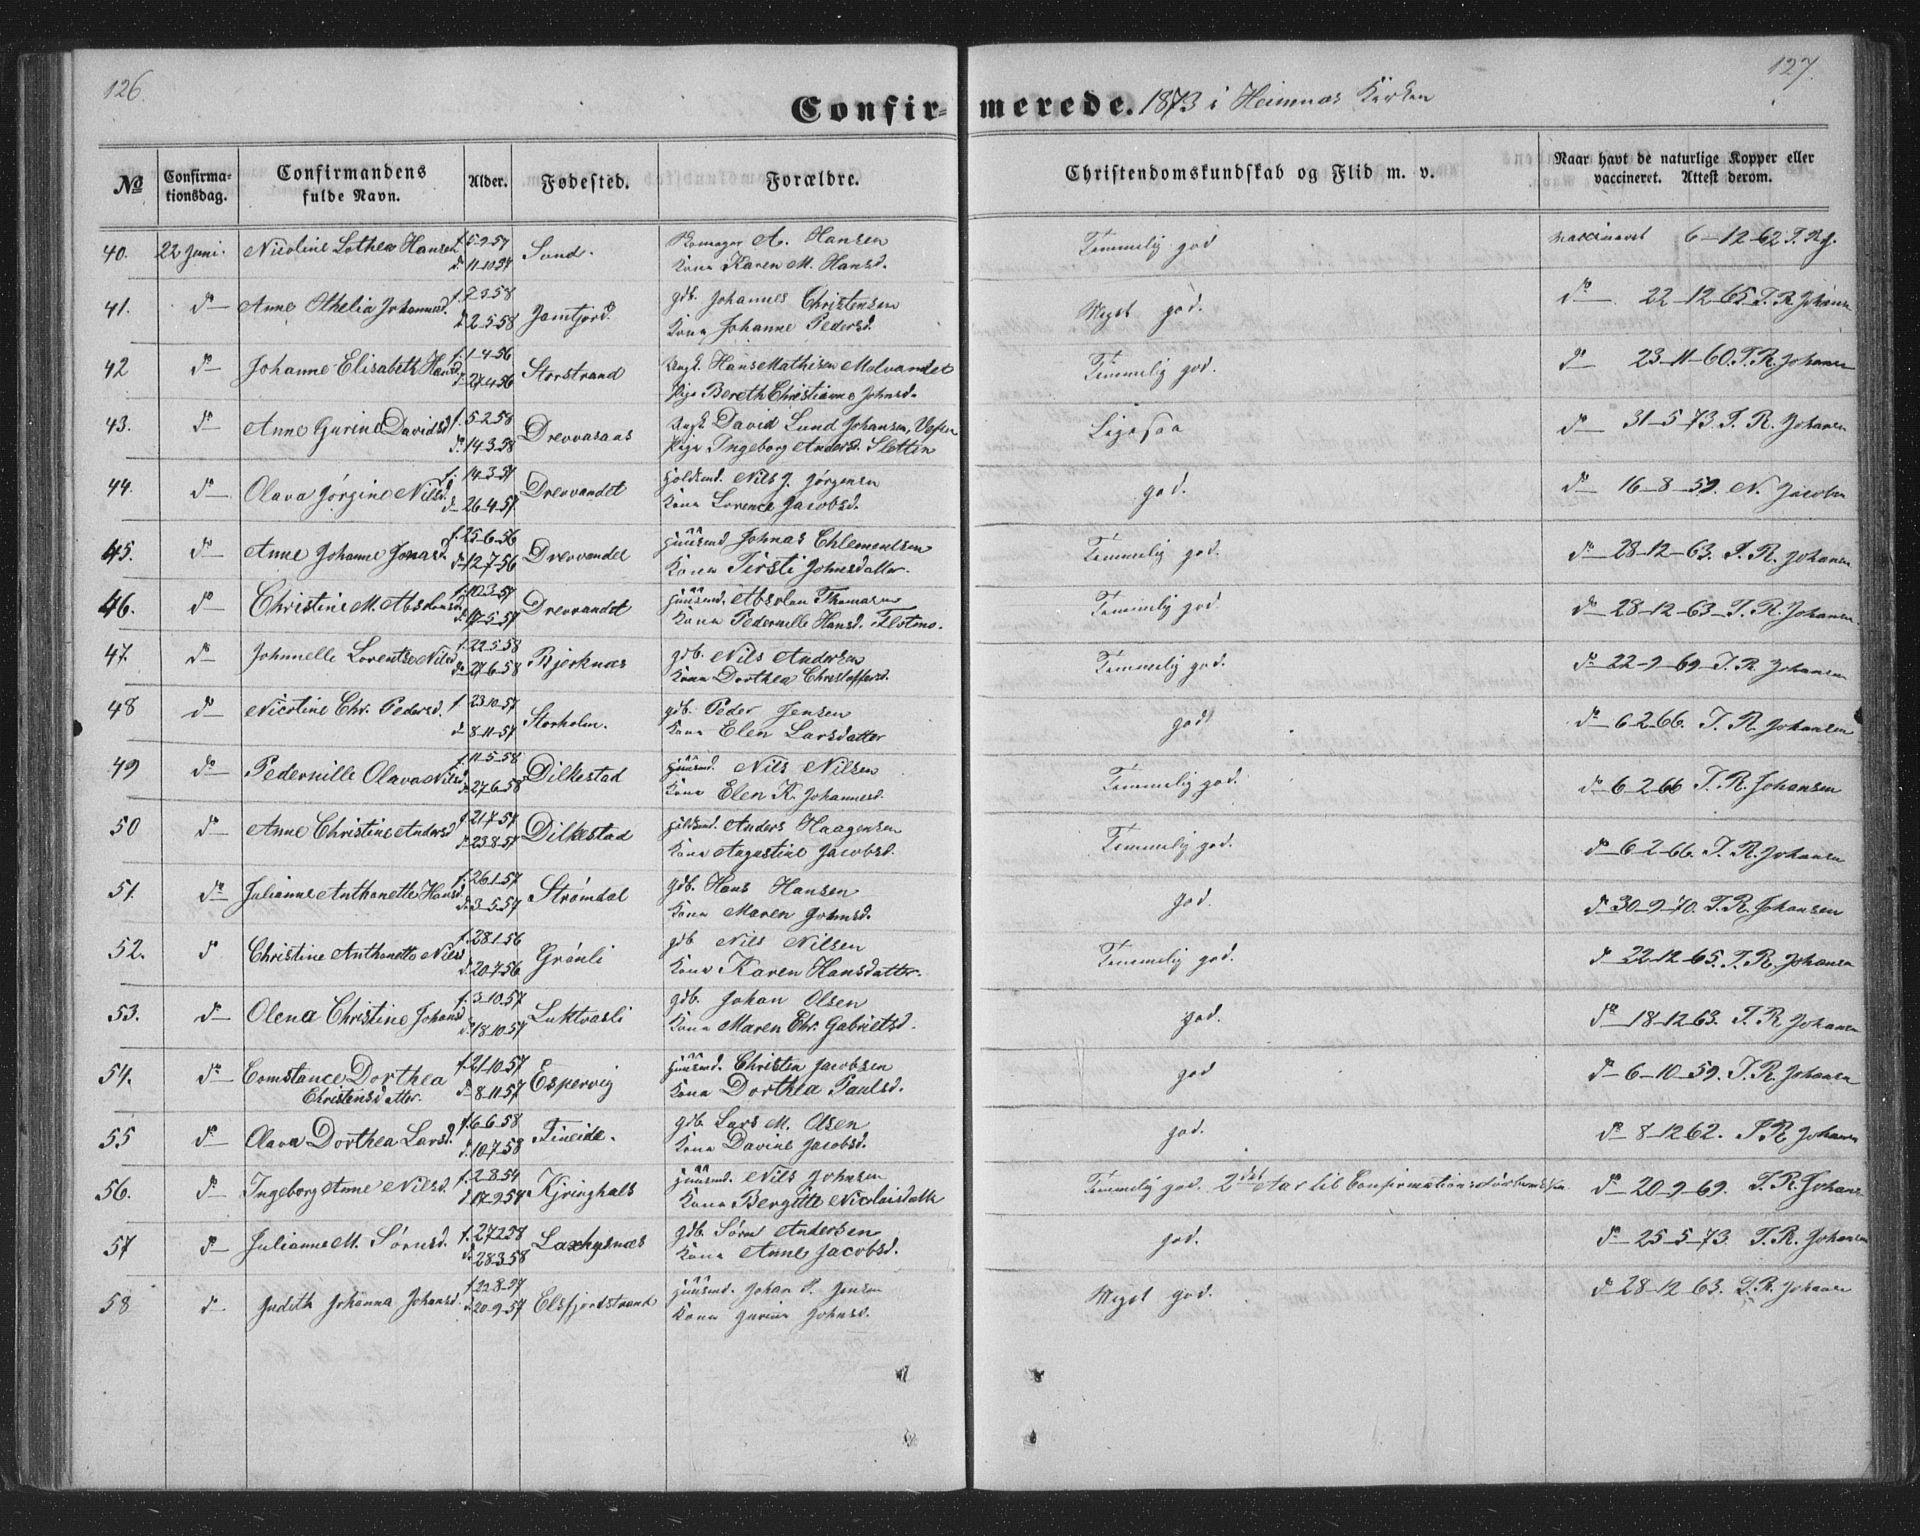 126.
127.
Confirmerede. 1873 i Hemnæs Kirken
№
Confirmationsdag.
Confirmandens fulde Navn.
Alder.
Fødested.
Forældre.
Christendomskundskab og Flid m. v.
Naar havt de naturlige Kopper eller vaccineret. Attest derom.
40. 22 Juni. Nicoline Lothea Hansen f. 5-9-57 Sund. A. Hansen Temmelig god vaccineret 6-12-62 T. R. J.
d. 11-10-57 Kone Karen M. Hansd.
41. do Anne Othelia Johannesd. f. 2-3-58 Jamtjord. gdb. Johannes Christensen Meget god. do 22-12-65 T. R. Johansen
d. 2-5-58 Kone Johanne Pedersd.
42 do Johanne Elisabeth Hansd. f. 1-4-56 Storstrand Ungk. Hans Mathisen Molvandet Temmelig god. do 23-11-60. T. R. Johansen
d. 27-4-56 Pige Bereth Christianne Johnsd.
43. do Anne Gurine Davidsd f. 5-2-58 Drevvasaas Ungk David Lund Johansen, Vefsn Ligesaa do 31-5-73. T. R. Johansen
d. 14-3-58 Pige Ingeborg Andersd. Sletten
44. do Olava Jørgine Nilsd. f. 14-3-57 Drevvandet Nils J. Jørgensen god. do 16-8-59. N. Jacobsen
d. 26-4-57 Kone Lorence Jacobsd.
45. do Anne Johanne Jonasd. f. 25-6-56 Drevvandet Huusmd Johnas Chlementsen Temmelig god. do 28-12-63. T. R. Johansen
d. 12-7-56 Kone Kirsti Johnsdatter.
46. do Christine M. Absalonsd f. 10-3-57 Drevvandet Huusmd. Absolon Thomasen Temmelig god do 28-12-63 T. R. Johansen
d. 17-5-57 Kone Pedernille Hansd. Flotmo.
47. do Johnelle Lorentse Nilsd f. 22-5-58 Bjerknæs gdb. Nils Andersen Temmelig god. do 22-9-69 T. R. Johansen
do 27-6-58 Kone Dorthea Christoffersd.
48 do Nicoline Chr. Pedersd. f. 23-10-57 Storholm. gdb. Peder Jensen god do 6-2-66. T. R. Johansen
d. 8-11-57 Kone Elen Larsdatter
49 do Pedernille Olava Nilsd f. 11-5-58 Dilkestad Huusmd. Nils Nilsen Temmelig god. do 6-2-66 T. R. Johansen
d. 27-6-58 Kone Elen K. Johannesd.
50 do Anne Christine Andersd f. 21-7-57 Dilkestad Anders Haagensen Temmelig god. do 6-2-66. T. R. Johansen
d. 23-8-57 Kone Augustine Jacobsd.
51. do Julianne Anthonette Hansd f. 26-1-57 Strømdal gdb. Hans Hansen god. do 30-9-70. T. R. Johansen
d. 3-5-57 Kone Maren Johnsd.
52. do Christine Anthonette Nilsd f. 28-1-56 Grønli gdb Nils Nilsen Temmelig god. do 22-12-65. T. R. Johansen
d. 20-7-56 Kone Karen Hansdatter.
53. do Olena Christine Johansd f. 3-10-57 Luktvasli gdb. Johan Olsen god. do 18-12-63. T. R. Johansen
d. 18-10-57 Kone Maren Chr. Gabrielsd.
54. do Comstance Dorthea f. 21-10-57 Espervig Huusmd. Christen Jacobsen god do 6-10-59. T. R. Johansen
Christensdatter. d. 8-11-57 Kone Dorthea Paulsd.
55 do Olava Dorthea Larsd. f. 6-6-58 Fineide. gdb. Lars M. Olsen god. do 8-12-62. T R Johansen
d. 10-7-58 Kone Davine Jacobsd.
56. do Ingeborg Anne Nilsd. f. 2-8-54 Kjringhals Huusmd. Nils Johnsen Temmelig god. 2det Aar til Confirmationsforberedelsen do 20-9-69. T. R. Johansen
d. 17-9-54 Kone Bergitte Nicolaisdatter
57 do Julianne M. Sørnsd. f. 27-2-58 Laxhysnæs gdb. Sørn Andersen god. do 25-5-73. T. R. Johansen
d. 28-3-58 Kone Anne Jacobsd.
58 do Judith Johanna Johansd. f. 22-8-57 Elsfjordstrand Huusmd. Johan P. Jensen Meget god. do 28-12-63. T. R. Johansen
d. 20-9-57 Kone Gurine Johnsd.